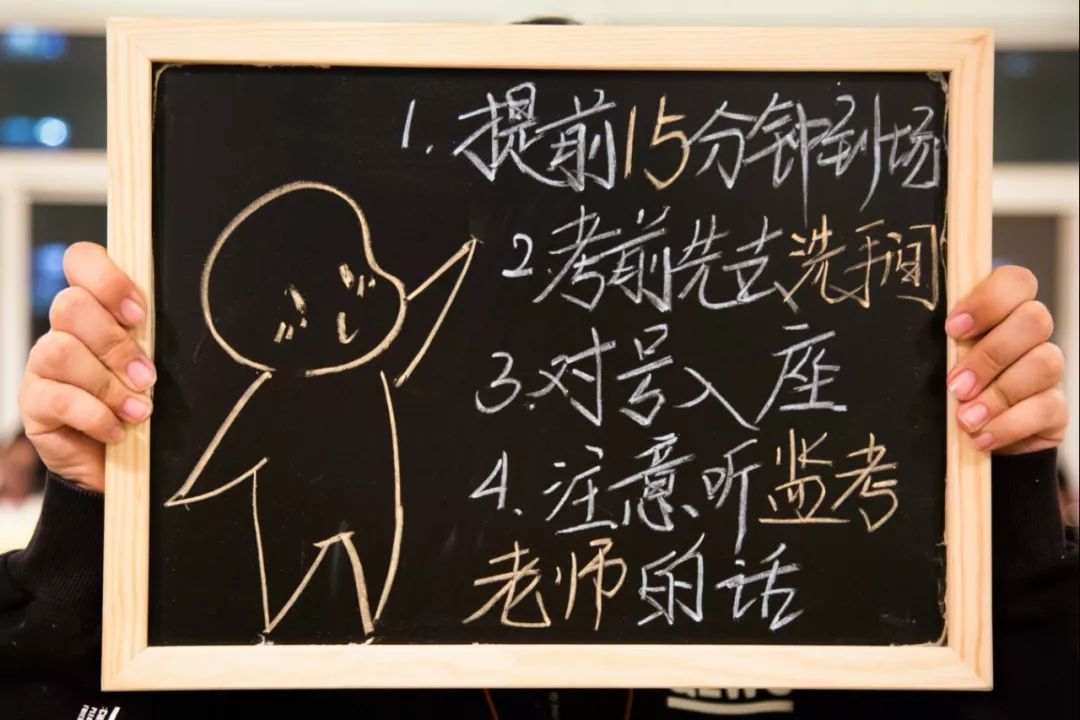 1. 提前15分钟到场
2. 考前先去洗手间
3. 对号入座
4. 注意听监考
老师的话